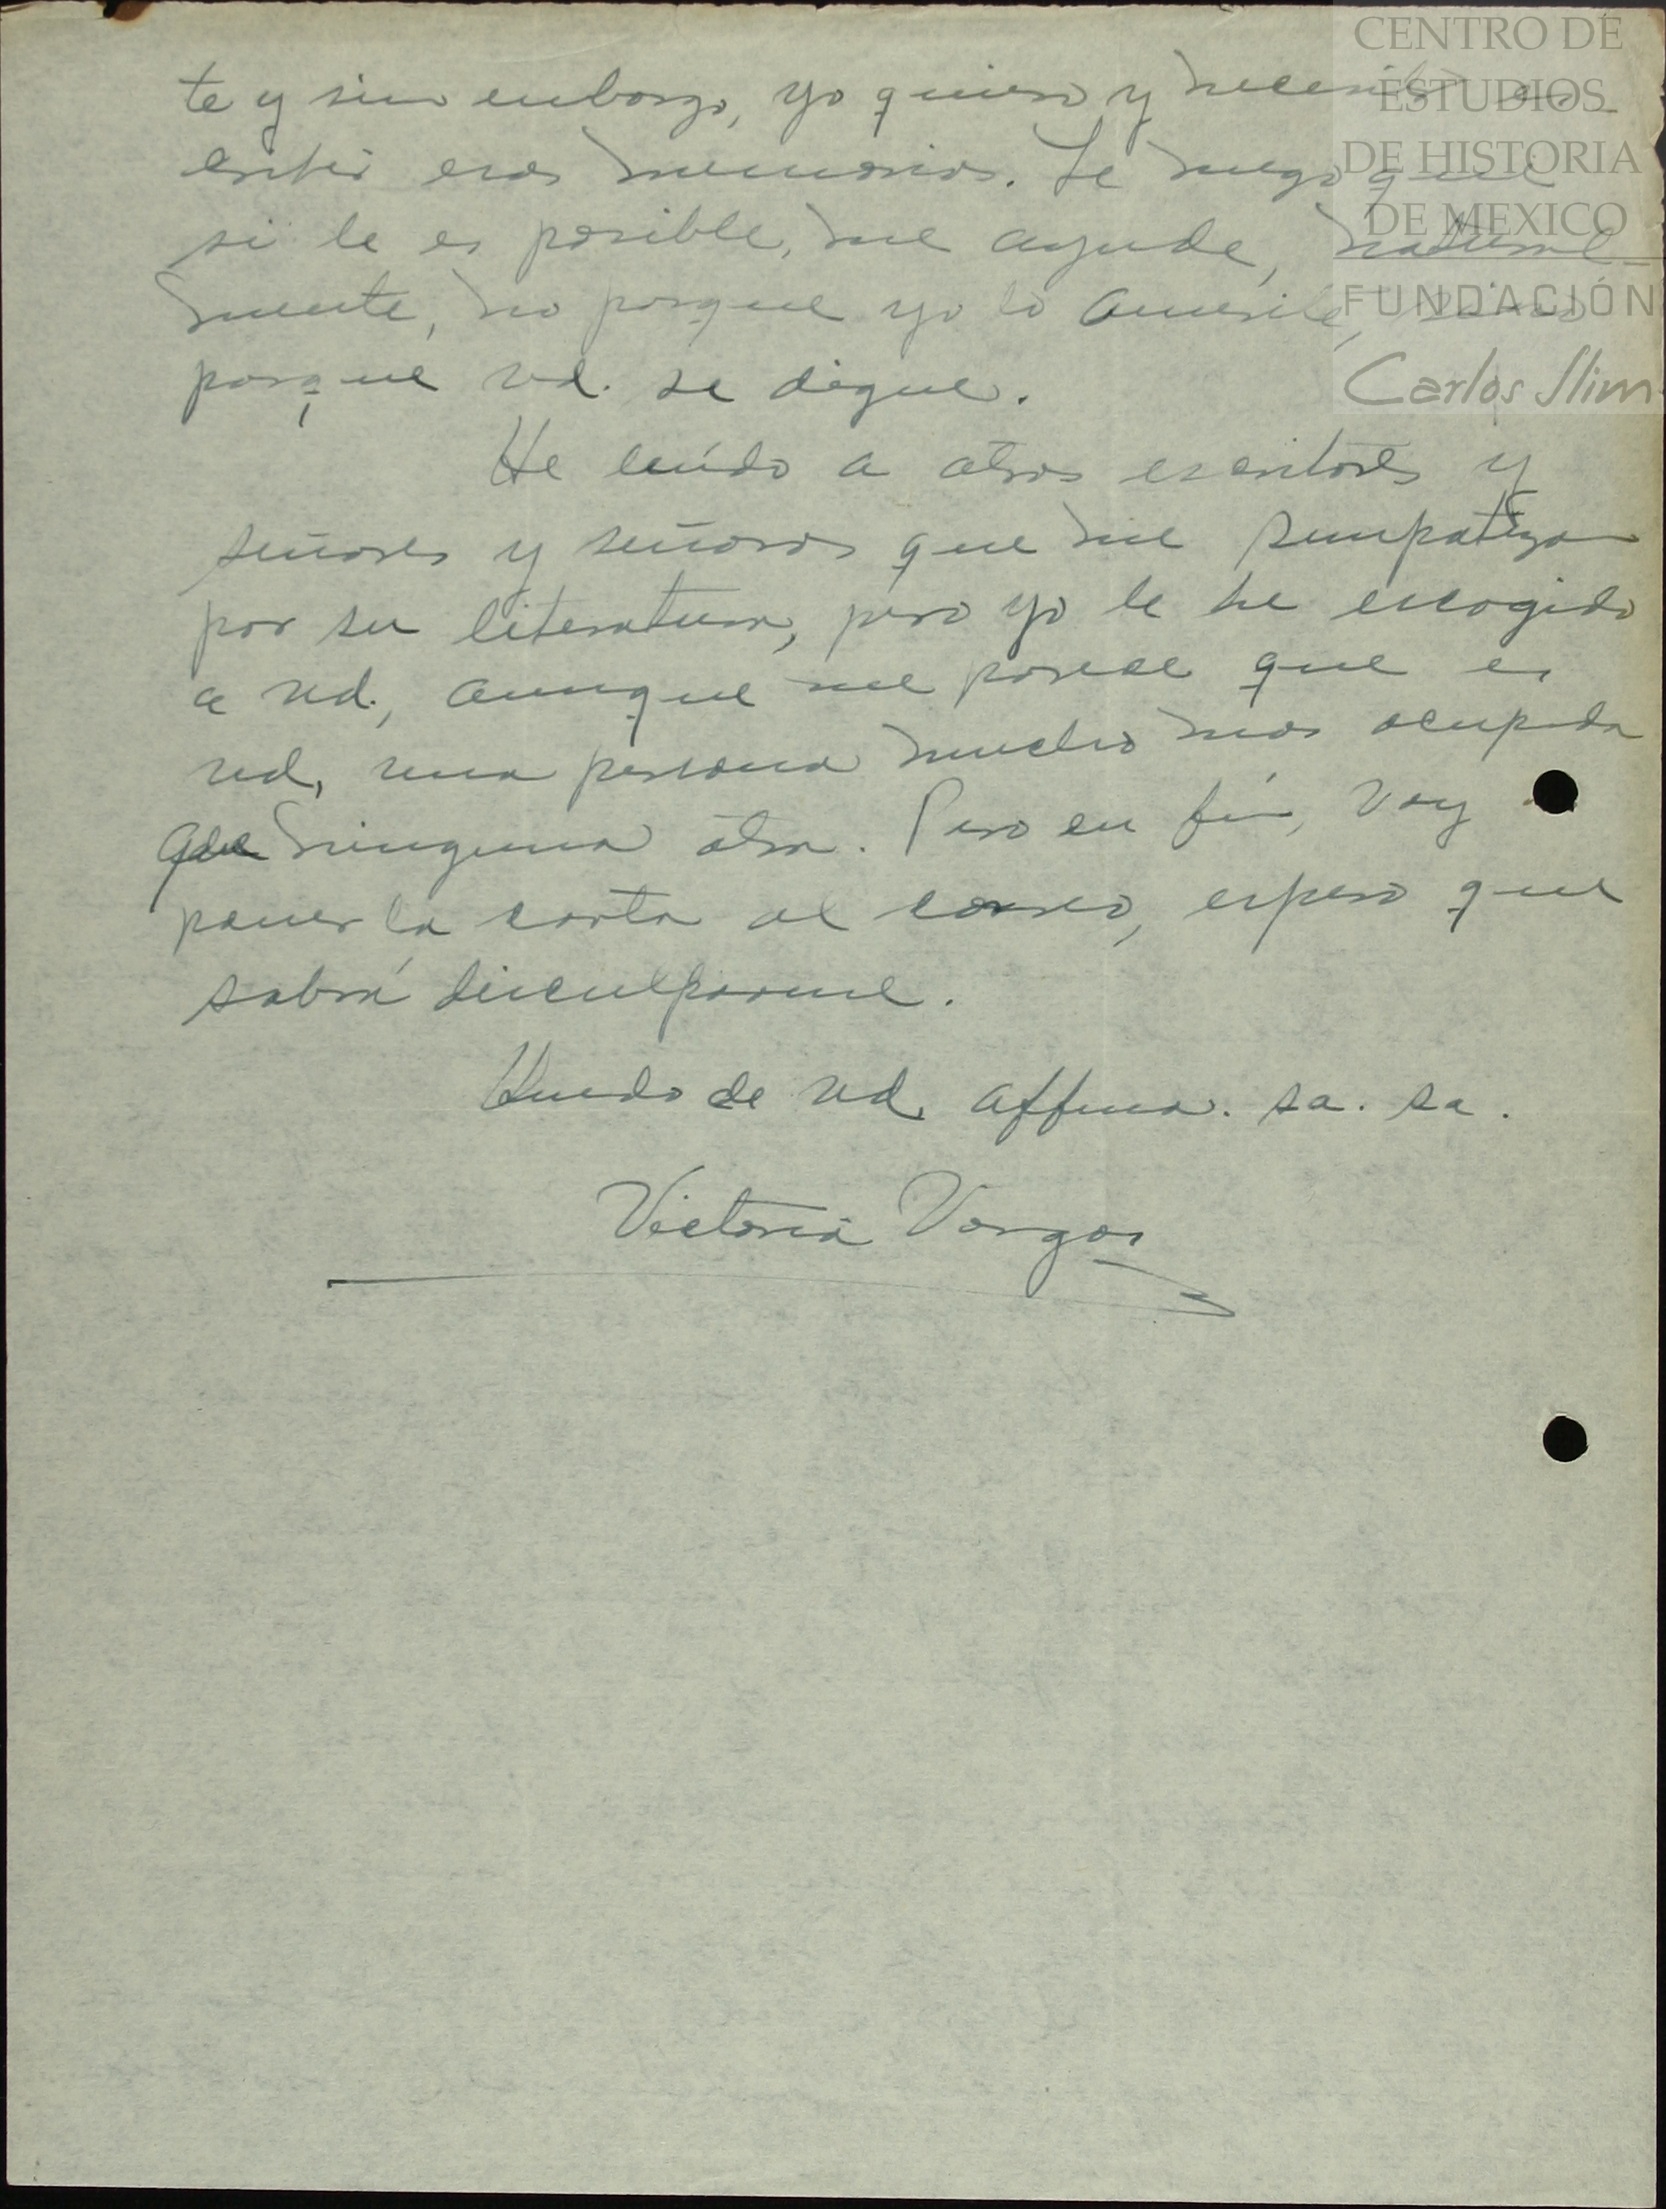 CENTRO DE
ESTUDIOS
DE HISTORIA
DE MEXICO
FUNDACIÓN
Carlos Slim
te y sin enbargo, yo quiero y necesito es-
cribir esas memorias. Le ruego que
si le es posible, me ayude, natural-
mente, no porque yo lo amerite, sino
porque ud. se digne.
He leído a otros escritores y
señores y señoras que me simpatizan
por su literatura, pero yo le he escogido
a ud., aunque me parece que es
ud, una persona mucho mas ocupada
que ninguna otra. Pero en fin, voy a
poner la carta al correo, espero que
sabrá disculparme.
Quedo de ud. affma. sa. sa.
Victoria Vargas